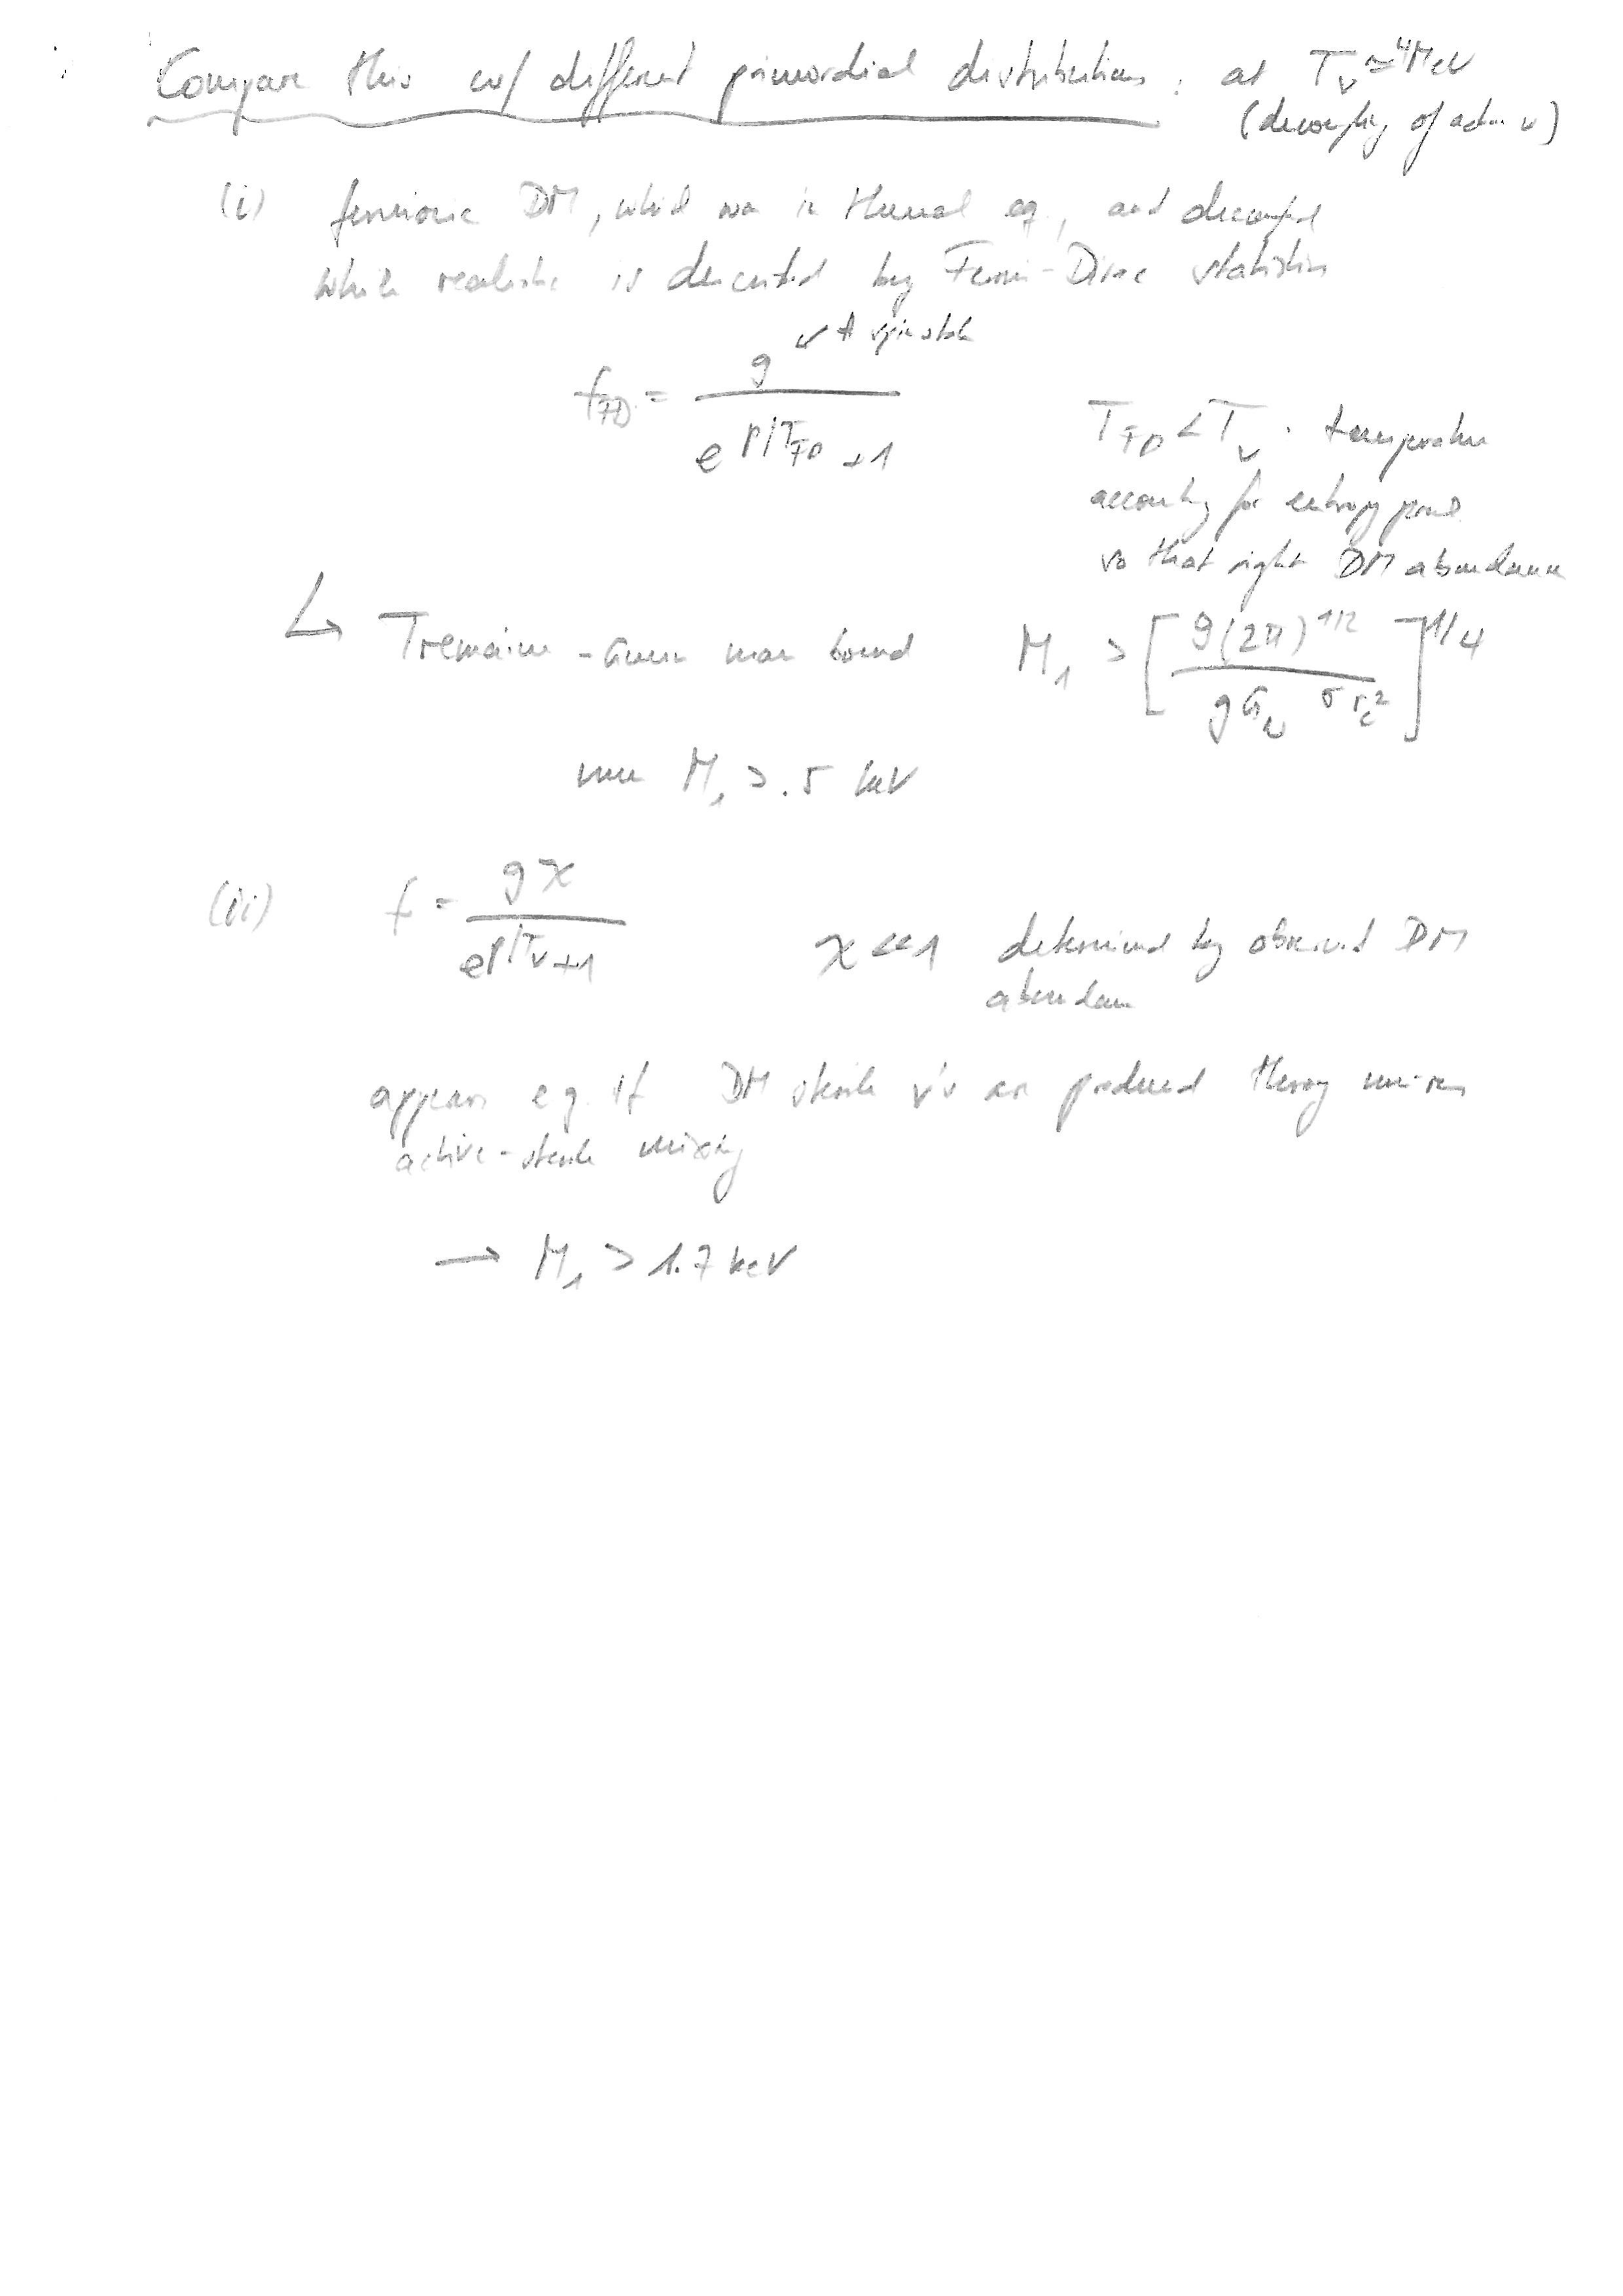 Compare this w/ different primordial distributions : at T_ν ≃ 4MeV
(decoupling of active ν)
(i) fermionic DM, which was in thermal eq., and decoupled
while relativistic is described by Fermi-Dirac statistics
f_FD = g / (e^{p/T_FD} + 1) ↙ # spin states
T_FD < T_ν : temperature
accounting for entropy prod.
so that right DM abundance
↳ Tremaine-Gunn mass bound M_1 > [ 9(2π)^{1/2} / (g G_N σ r_c^2) ]^{1/4}
M_1 > .5 keV
(ii) f = g χ / (e^{p/T_ν} + 1)
χ << 1 determined by observed DM
abundance
appears e.g. if DM sterile ν's are produced
active-sterile mixing
→ M_1 > 1.7 keV